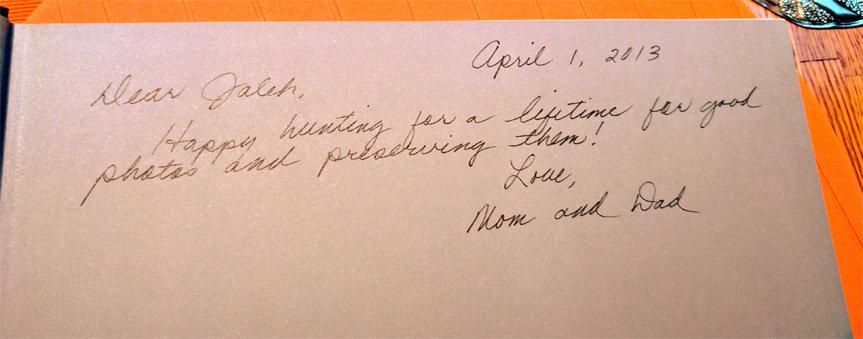 April 1, 2013
Dear Jaleh,
Happy hunting for a lifetime for good
photos and preserving them!
Love,
Mom and Dad